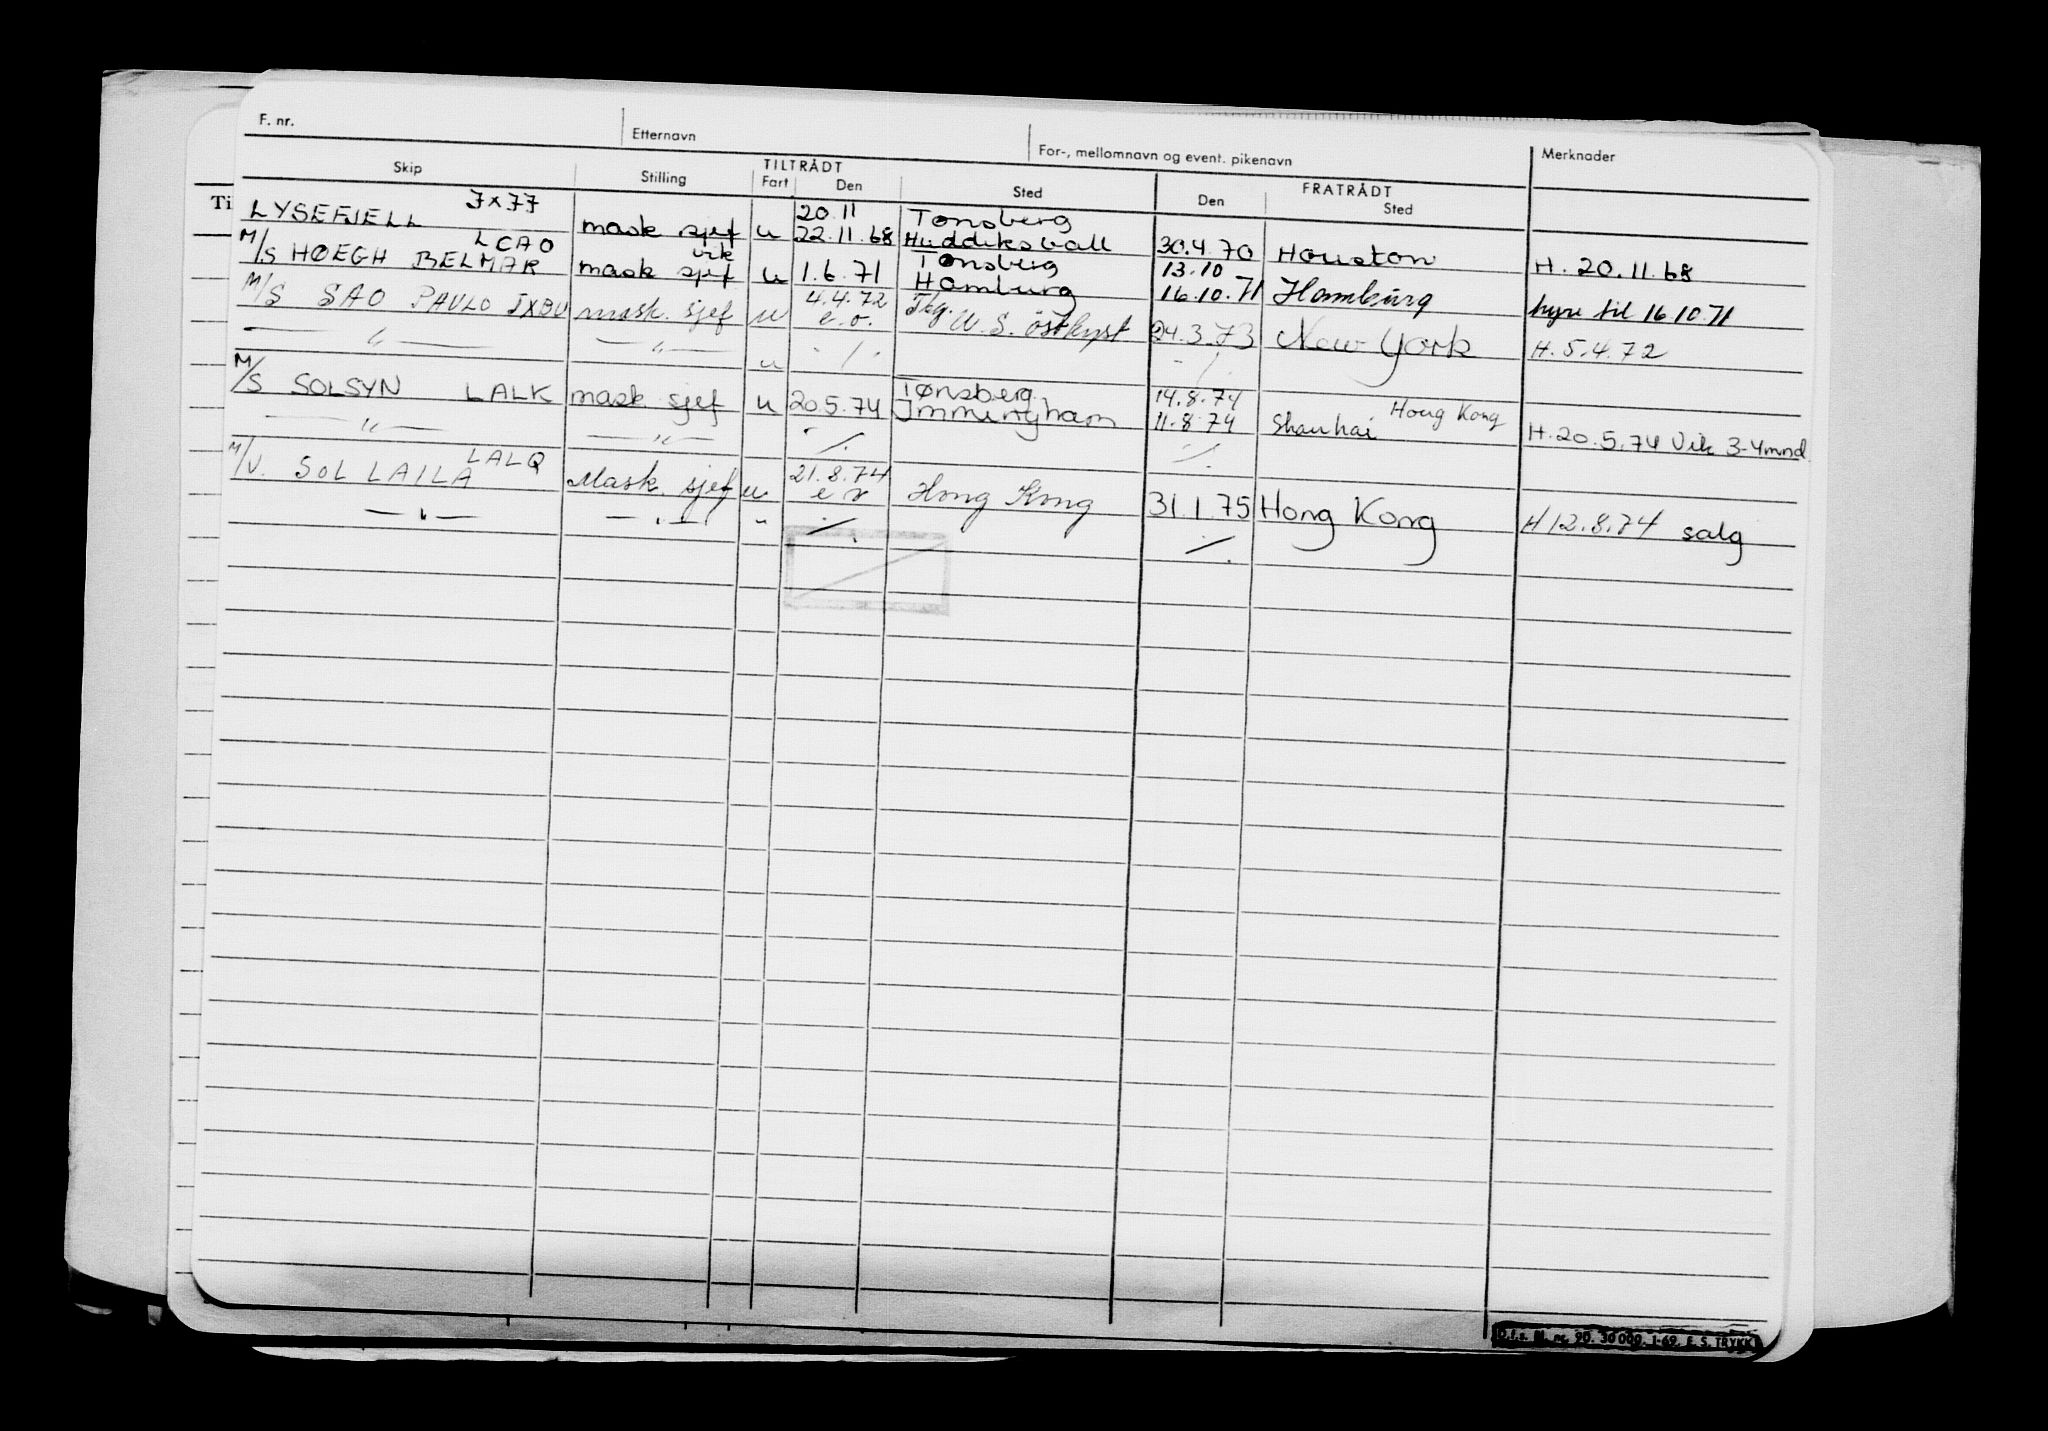 F. nr. Etternavn For-, mellomnavn og event. pikenavn Merknader
TILTRÅDT FRATRÅDT
Skip Stilling Fart Den Sted Den Sted
Ti
JXJJ 20.11 Tønsberg
LYSEFJELL mask sjef u 22.11.68 Huddiksvall 30.4.70 Houston H. 20.11.68
LCAO vik Tønsberg 13.10
M/S HØEGH BELMAR mask sjef u 1.6.71 Hamburg 16.10.71 Hamburg hyre til 16.10.71
4.4.72 Tbg.
M/S SAO PAULO JXBU mask. sjef u e.o. U.S. østkyst 24.3.73 New York H. 5.4.72
— " — — " — u ./. ./.
Tønsberg 14.8.74 Hong Kong
M/S SOLSYN LALK mask. sjef u 20.5.74 Immingham 11.8.74 Shanhai H. 20.5.74 Vik 3-4mnd.
— " — — " — ./. ./.
LALQ 21.8.74
M/V. SOL LAILA Mask. sjef u e o Hong Kong 31.1.75 Hong Kong H 12.8.74 salg
— " — — " — " ./. ./.
D.f.s. Bl. nr. 90. 30 000. 1-69. E. S. TRYKK